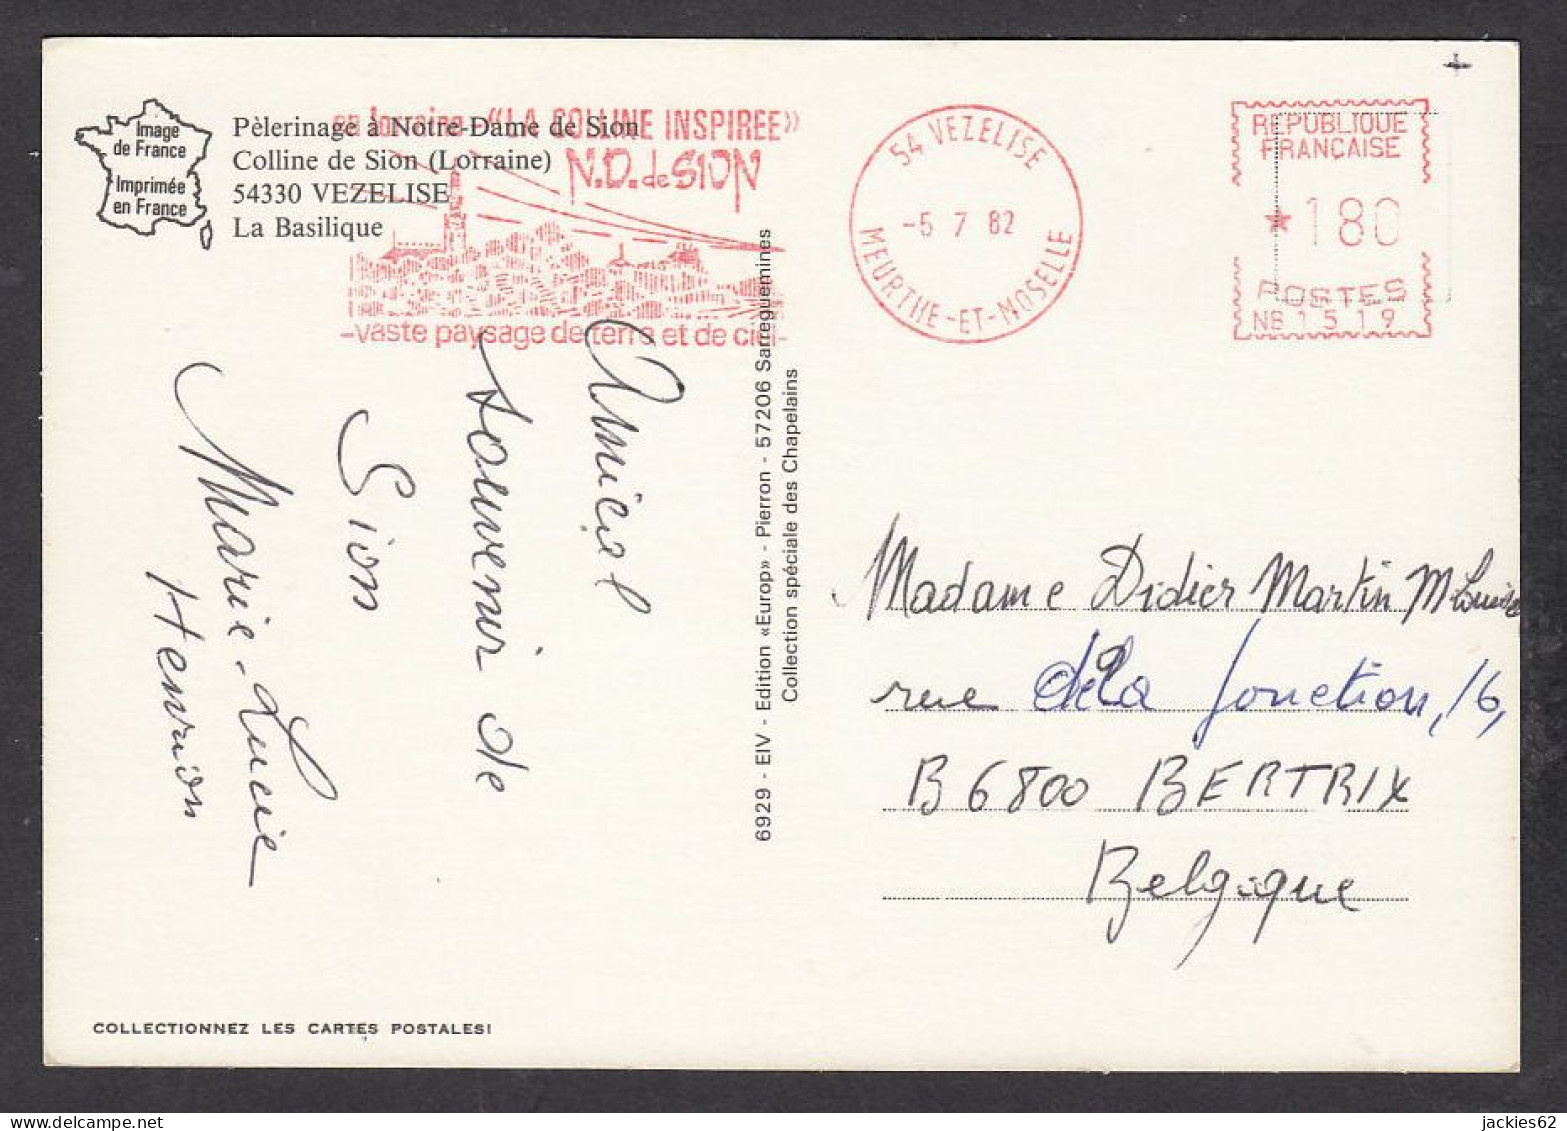 Image
de France
Imprimée
en France
Pèlerinage à Notre-Dame de Sion
Colline de Sion (Lorraine)
54330 VEZELISE
La Basilique
en lorraine - "LA COLLINE INSPIREE"
N.D. de SION
-vaste paysage de terre et de ciel-
54 VEZELISE
-5 7 82
MEURTHE-ET-MOSELLE
REPUBLIQUE
FRANÇAISE
★180
POSTES
NB 1519
Amical
souvenir de
Sion
Marie-Lucie
Henrion
6929 - EIV - Edition «Europ» - Pierron - 57206 Sarreguemines
Collection spéciale des Chapelains
Madame Didier Martin M-Louise
rue de la Jonction, 16,
B 6800 BERTRIX
Belgique
COLLECTIONNEZ LES CARTES POSTALES!
jackies62